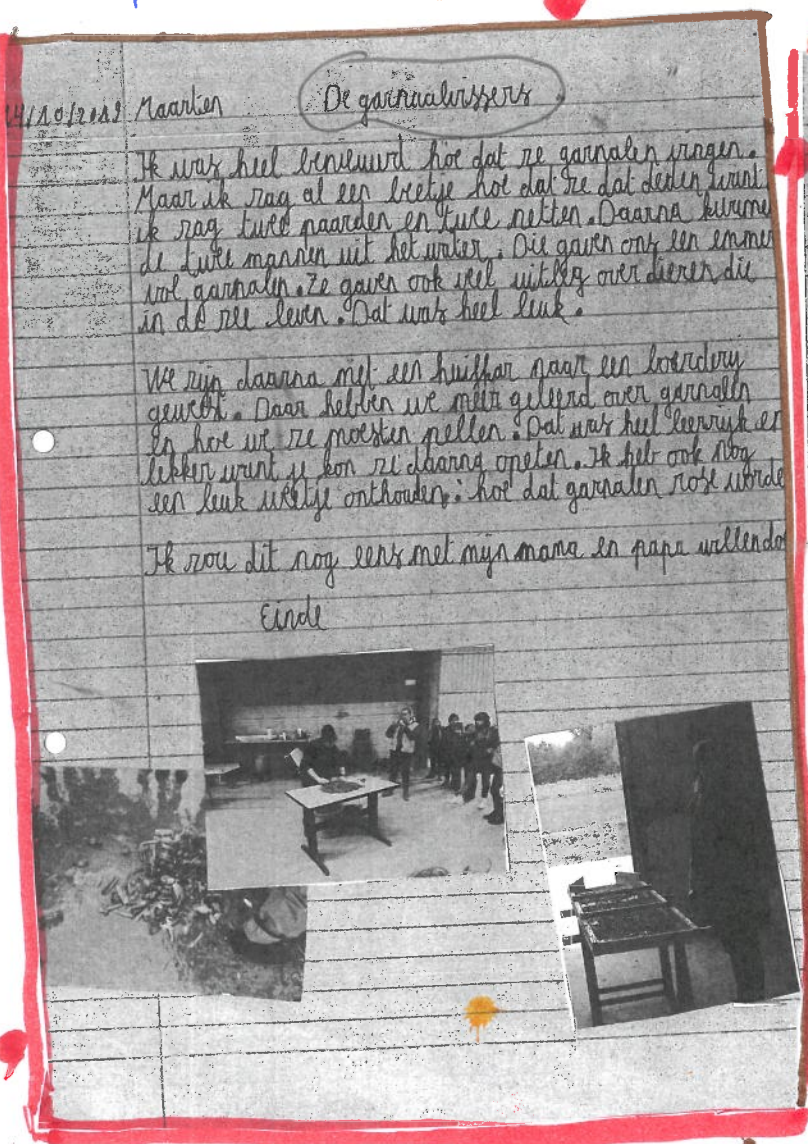 14/10/2019 Maartien De garnaalvissers
Ik was heel benieuwd hoe dat ze garnalen vingen.
Maar ik zag al een beetje hoe dat ze dat deden want
ik zag twee paarden en twee netten. Daarna kwame
de twee mannen uit het water. Die gaven ons een emmer
vol garnalen. Ze gaven ook veel uitleg over dieren die
in de zee leven. Dat was heel leuk.
We zijn daarna met een huifkar naar een boerderij
geweest. Daar hebben we meer geleerd over garnalen
en hoe we ze moesten pellen. Dat was heel leerrijk en
lekker want je kon ze daarna opeten. Ik heb ook nog
een leuk weetje onthouden: hoe dat garnalen rose worde
Ik zou dit nog eens met mijn mama en papa willen do
Einde